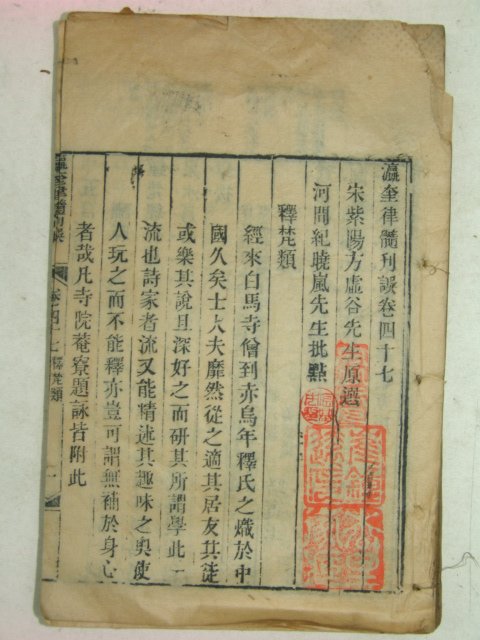 瀛奎律髓刊誤卷四十七
宋紫陽方虛谷先生原選
河間紀曉嵐先生批點
釋梵類
經來白馬寺僧到赤烏年釋氏之熾於中
國久矣士大夫靡然從之適其居友其徒
或樂其說且深好之而研其所謂學此一
流也詩家者流又能精述其趣味之奧使
人玩之而不能釋亦豈可謂無補於身心
者哉凡寺院菴寮題詠皆附此
瀛奎律髓刊誤 卷四十七 釋梵類 一